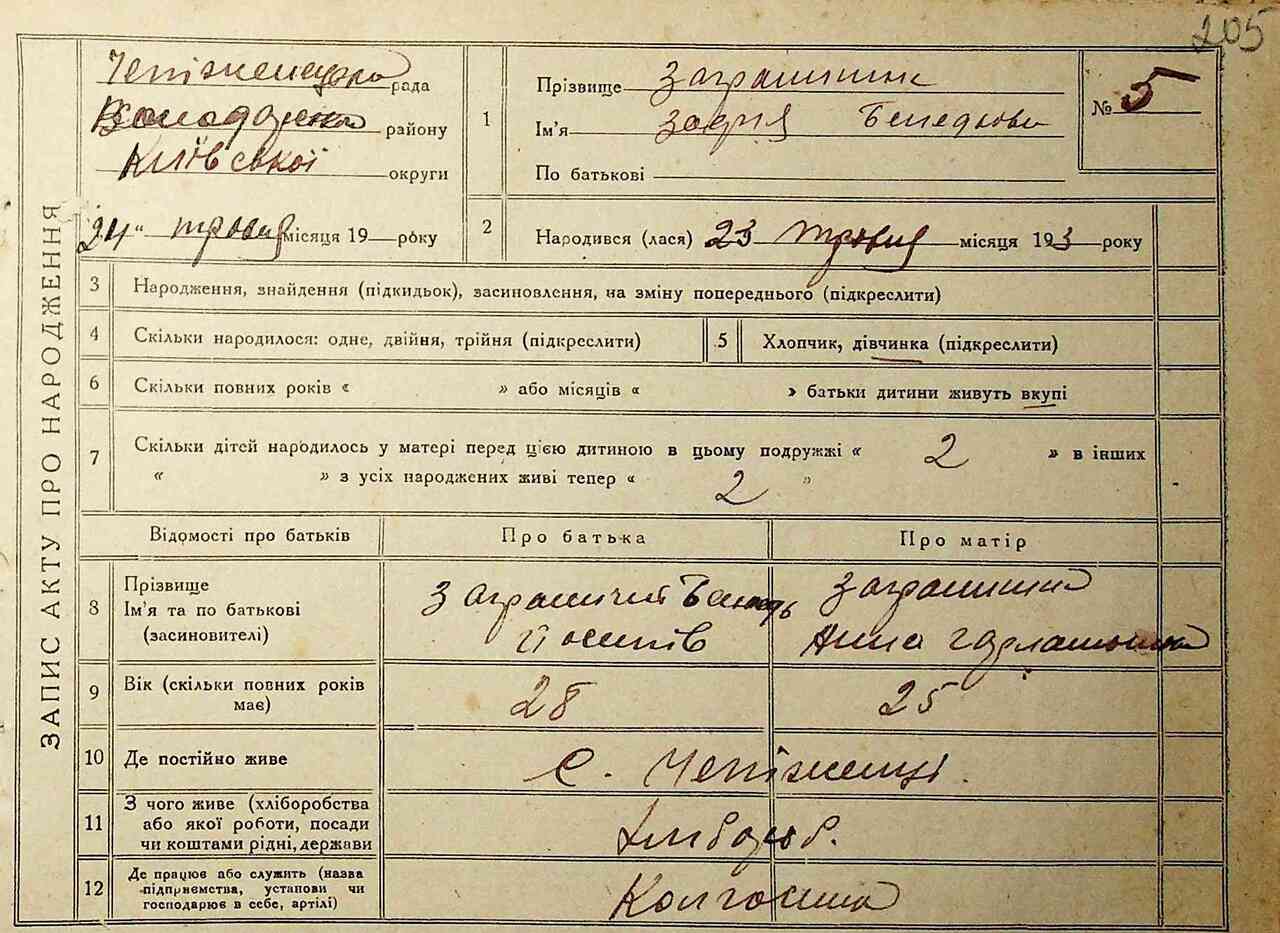 205
ЗАПИС АКТУ ПРО НАРОДЖЕННЯ
Чепіженецька рада
району
Київської округи
24" травня місяця 19 року
1
Прізвище
Ім'я Зофия
По батькові
№ 5
2
Народився (лася) 23 травня місяця 193 року
3 Народження, знайдення (підкидьок), засиновлення, на зміну попереднього (підкреслити)
4 Скільки народилося: одне, двійня, трійня (підкреслити)
5 Хлопчик, дівчинка (підкреслити)
6 Скільки повних років « » або місяців « » батьки дитини живуть вкупі
7 Скільки дітей народилось у матері перед цією дитиною в цьому подружжі « 2 » в інших
« » з усіх народжених живі тепер « 2 »
Відомості про батьків Про батька Про матір
8 Прізвище
Ім'я та по батькові
(засиновителі)
Заграничий
Йосипів
Анна
9 Вік (скільки повних років
має)
28 25
10 Де постійно живе с. Чепіженці.
11 З чого живе (хліборобства
або якої роботи, посади
чи коштами рідні, держави
Хлібороб.
12 Де працює або служить (назва
підприємства, установи чи
господарює в себе, артілі)